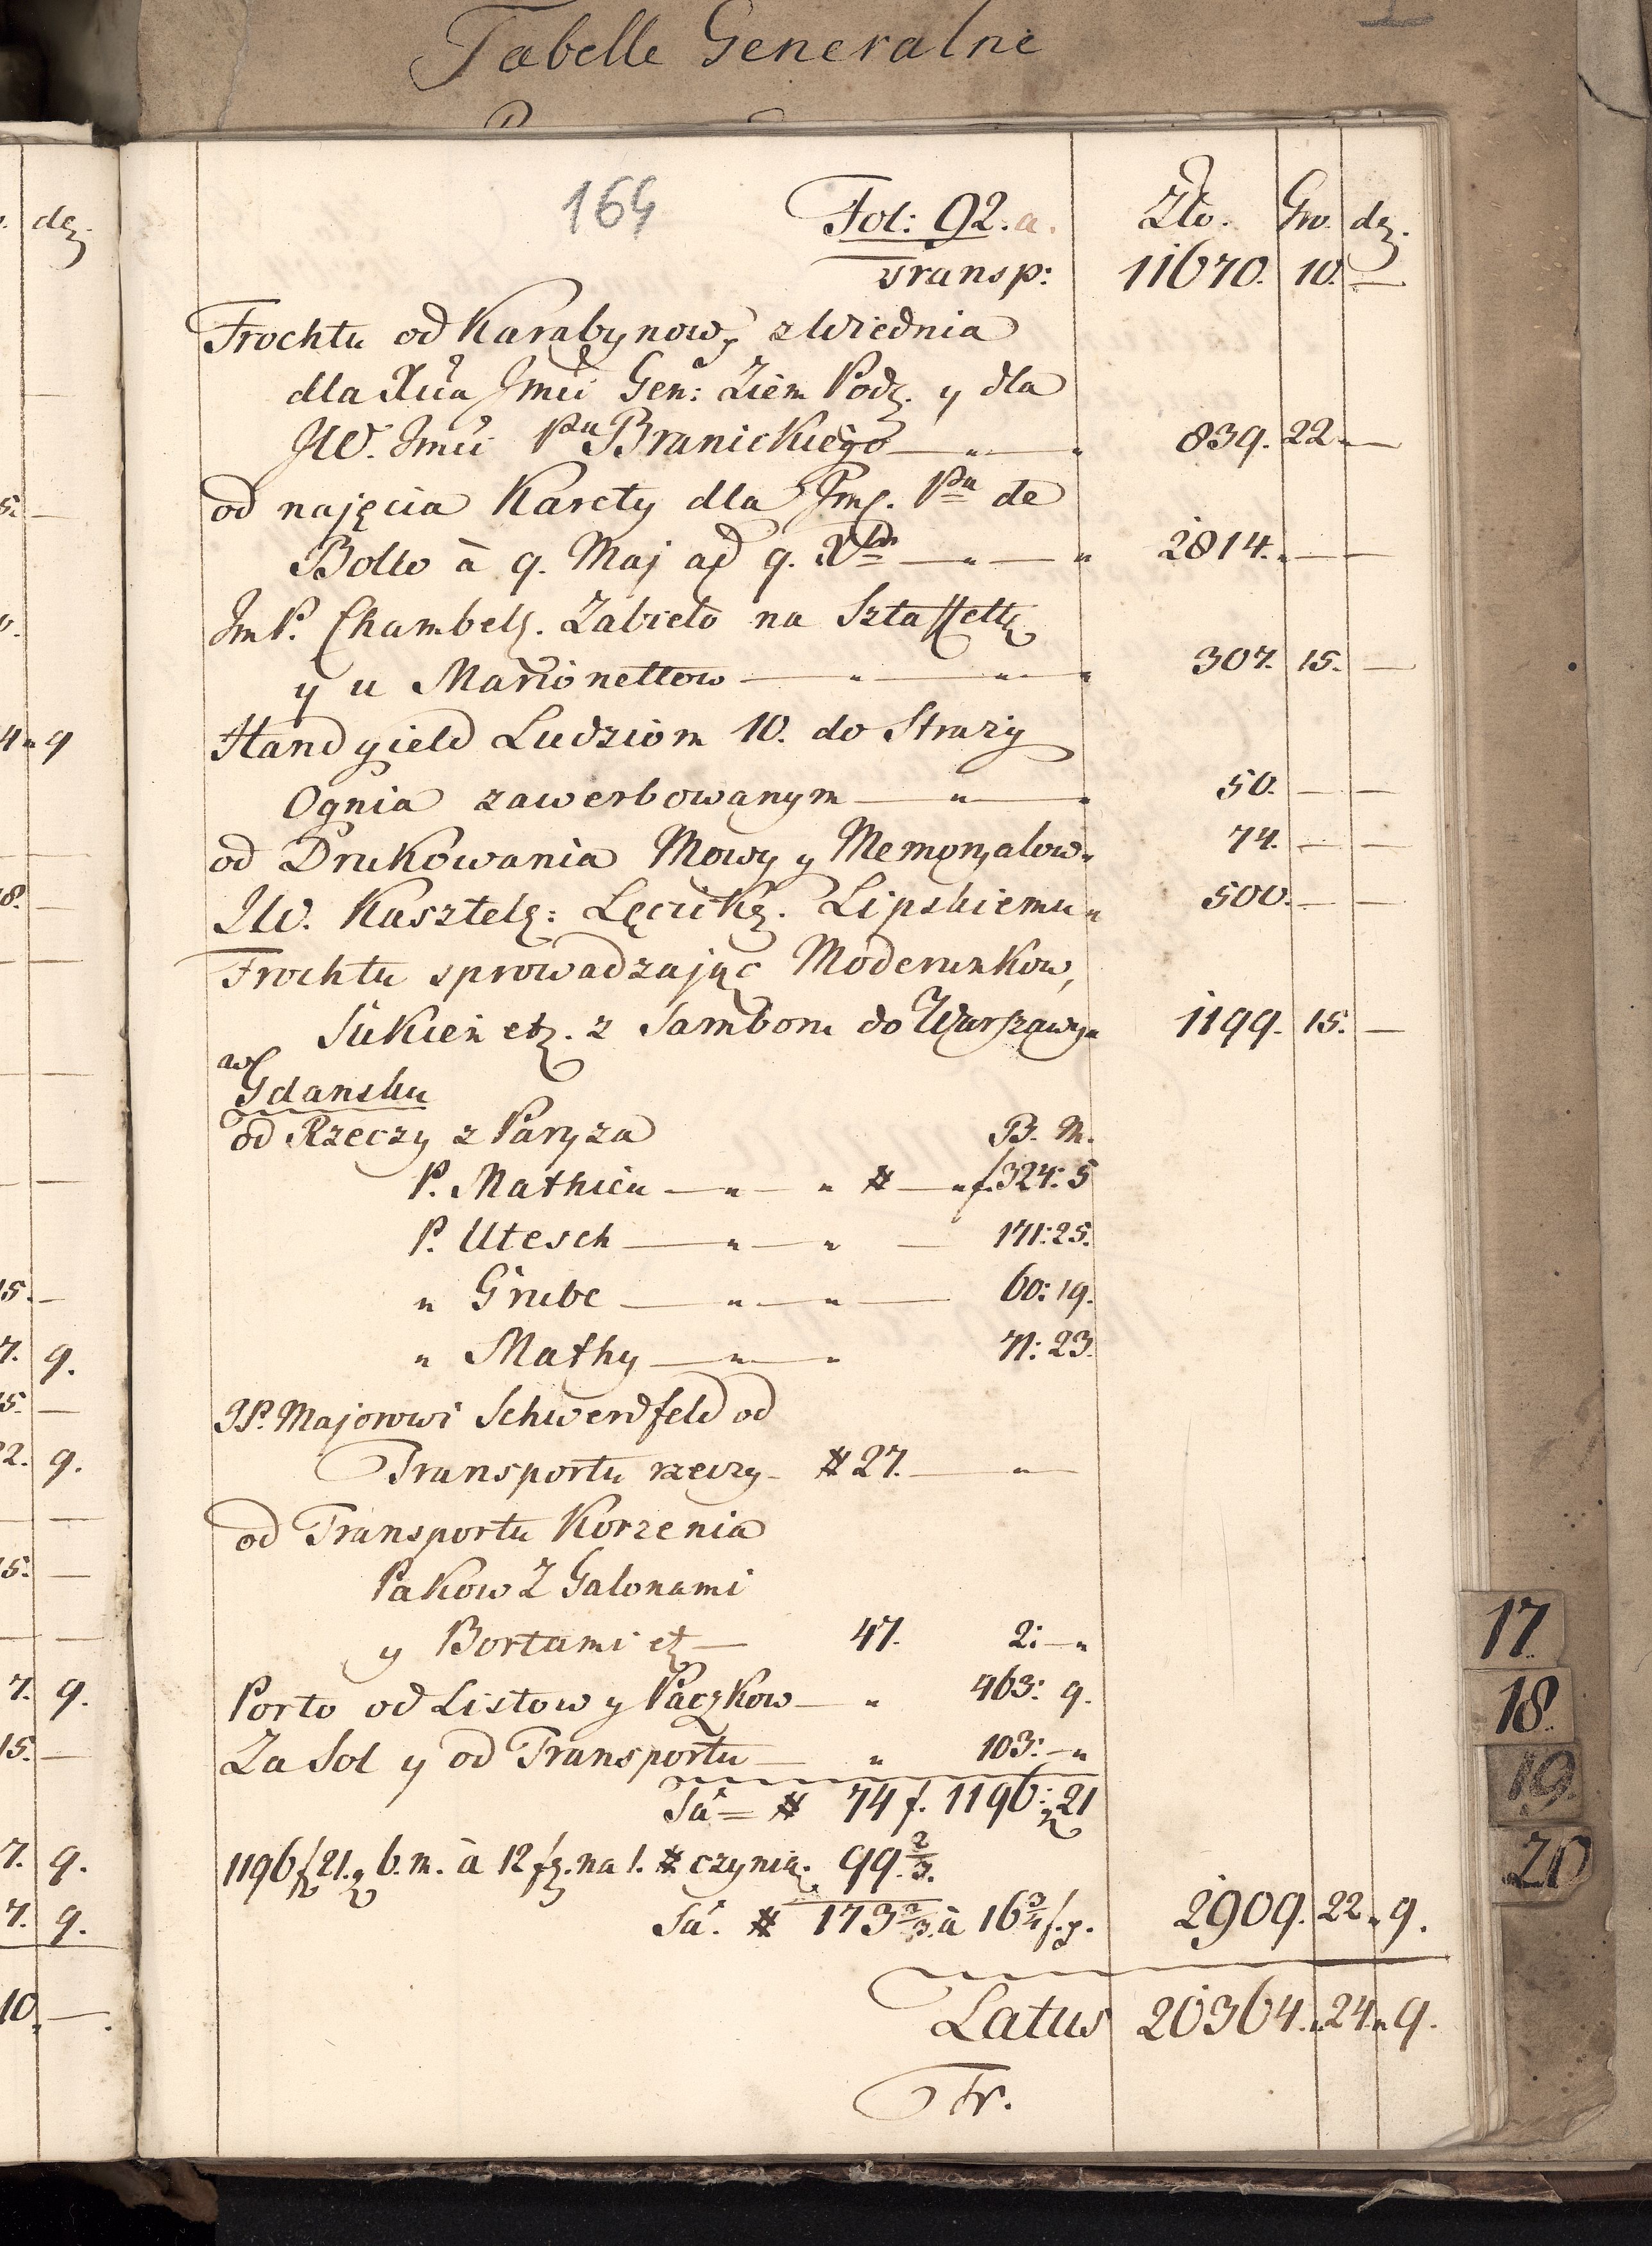 Tabelle Generalne
164
Fol: 92. a. Zło. Gro. dz.
Transp: 11670. 10. —
Frochtu od Karabynow, z Wiednia
dla Xcia Jmci Gen: Ziem Podz. y dla
JW. Jmci Pna Branickiego — „ — „ 839. 22. —
od najęcia Karety dla Jmc. Pna de
Bollo à 9. Maj ad 9. Xbr — „ — „ 2814. — —
JmP. Chambelz. Zabieło na Sztaffettę
y u Marionettow — „ — „ — „ 307. 15. —
Handgield Ludziom 10. do Straży
Ognia zawerbowanym — „ — „ 50. — —
od Drukowania Mowy y Memoryałow „ 74. — —
JW. Kasztelz: Lęcickz. Lipskiemu „ 500. — —
Frochtu sprowadzając Moderunkow,
Sukien etz. z Sambora do Warszawy „ 1199. 15. —
w Gdansku
od Rzeczy z Paryza B. M.
P. Mathieu — „ — „ # — „ f. 324: 5
P. Utesch — „ — „ — 171: 25.
„ Grube — „ — „ — 60: 19.
„ Mathy — „ — „ 71: 23.
JP. Majorowi Schwerdfeld od
Transportu rzeczy — # 27. — „ —
od Transportu Korzenia
Pakow Z Galonami
y Bortami etz — 47. 2: — „
Porto od Listow y Paczkow — „ 463: 9.
Za Sol y od Transportu — „ 103: — „
Sa = # 74 f. 1196: 21
1196 f 21. g b. m. à 12 fz. na 1. # czynią. 99. 2/3.
Sa. # 173 2/3. à 16 3/4 f. p. 2909. 22. 9.
Latus 20364. 24. 9.
Tr.
17.
18.
19.
20